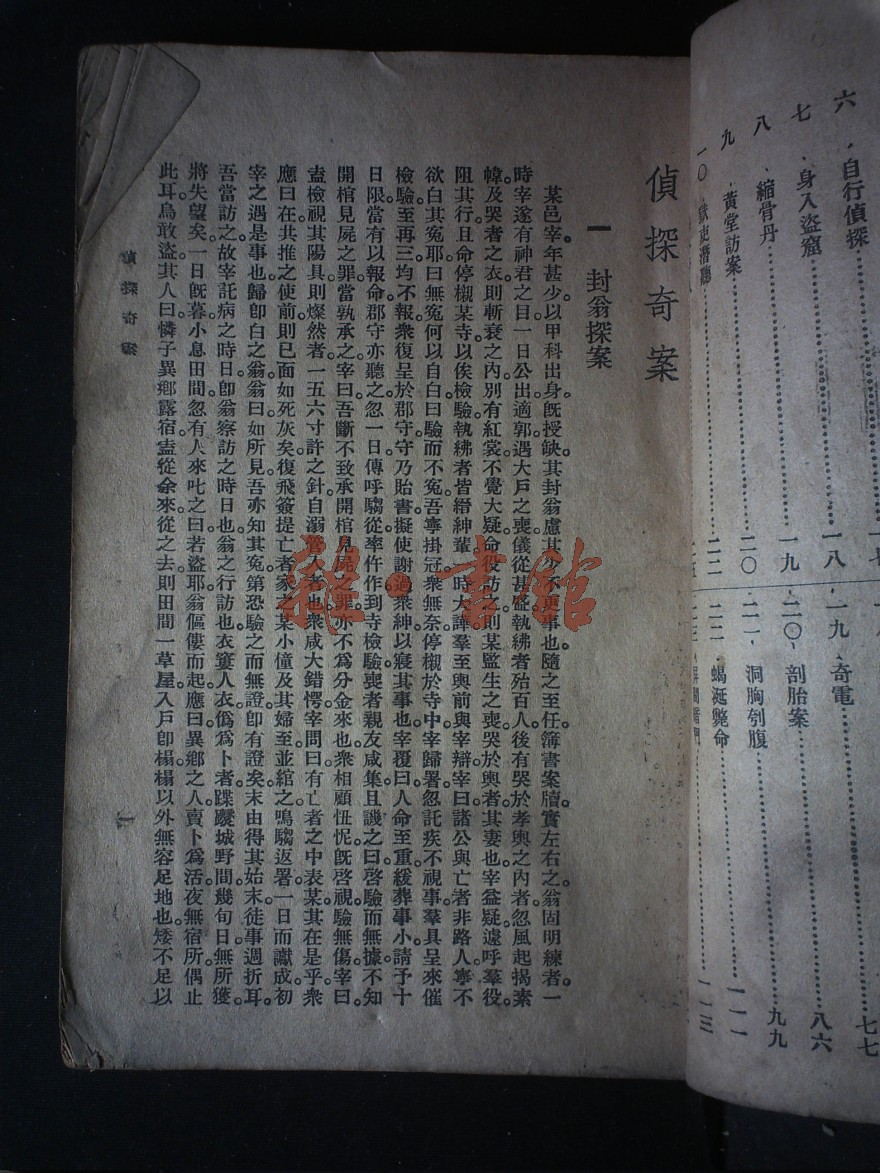 六．自行偵探
七．身入盜窟 一八
八．縮骨丹 一九
九．黃堂訪案 二〇
一〇．獄吏潛聽 二二
一九．奇電 七七
二〇．剖胎案 八六
二一．洞胸刳腹 九九
二二．蝎涎斃命 一一一
一一三
偵探奇案
一 封翁探案
某邑宰。年甚少。以甲科出身。旣授缺。其封翁慮其少不更事也。隨之至任。簿書案牘。實左右之。翁固明練者。一
時宰遂有神君之目。一日公出適郭。遇大戶之喪。儀從甚盛。執紼者殆百人。後有哭於孝輿之內者。忽風起揭素
幃。及哭者之衣。則斬衰之內。別有紅裳。不覺大疑。命役訪之。則某監生之喪。哭於輿者其妻也。宰益疑。遽呼羣役。
阻其行。且命停櫬某寺。以俟檢驗。執紼者皆縉紳輩。一時大譁。羣至輿前與宰辯。宰曰。諸公與亡者非路人。寧不
欲白其冤耶。曰無冤何以自白。曰驗而不冤。吾寧掛冠。衆無奈。停櫬於寺中。宰歸署。忽託疾不視事。羣具呈來催
檢驗。至再三。均不報。衆復呈於郡守。守乃貽書。擬使謝過衆紳。以寢其事也。宰覆曰。人命至重。緩葬事小。請予十
日限。當有以報命。郡守亦聽之。忽一日傳呼騶從。率仵作到寺檢驗。喪者親友咸集。且譏之曰。啓驗而無據。不知
開棺見屍之罪當孰承之。宰曰。吾斷不致承開棺見屍之罪。亦不爲分金來也。衆相顧忸怩。旣啓視。驗無傷。宰曰。
盍檢視其陽具。則燦然者。一五六寸許之針。自溺管入者也。衆咸大錯愕。宰問曰。有亡者之中表某其在是乎。衆
應曰在。共推之使前。則已面如死灰矣。復飛簽提亡者家之某小僮及其婦至。並綰之鳴騶返署。一日而讞成。初
宰之遇是事也。歸卽白之翁。翁曰。如所見。吾亦知其冤。第恐驗之而無證。卽有證矣。末由得其始末。徒事週折耳。
吾當訪之。故宰託病之時日。卽翁察訪之時日也。翁之行訪也。衣窶人衣。僞爲卜者。蹀躞城野間。幾旬日無所獲。
將失望矣。一日旣暮。小息田間。忽有人來叱之曰。若盜耶。翁傴僂而起。應曰。異鄉之人。賣卜爲活。夜無宿所。偶止
此耳。烏敢盜。其人曰。憐子異鄉露宿。盍從余來。從之去。則田間一草屋。入戶卽榻。榻以外無容足地也。矮不足以
偵探奇案
一
雜·書館